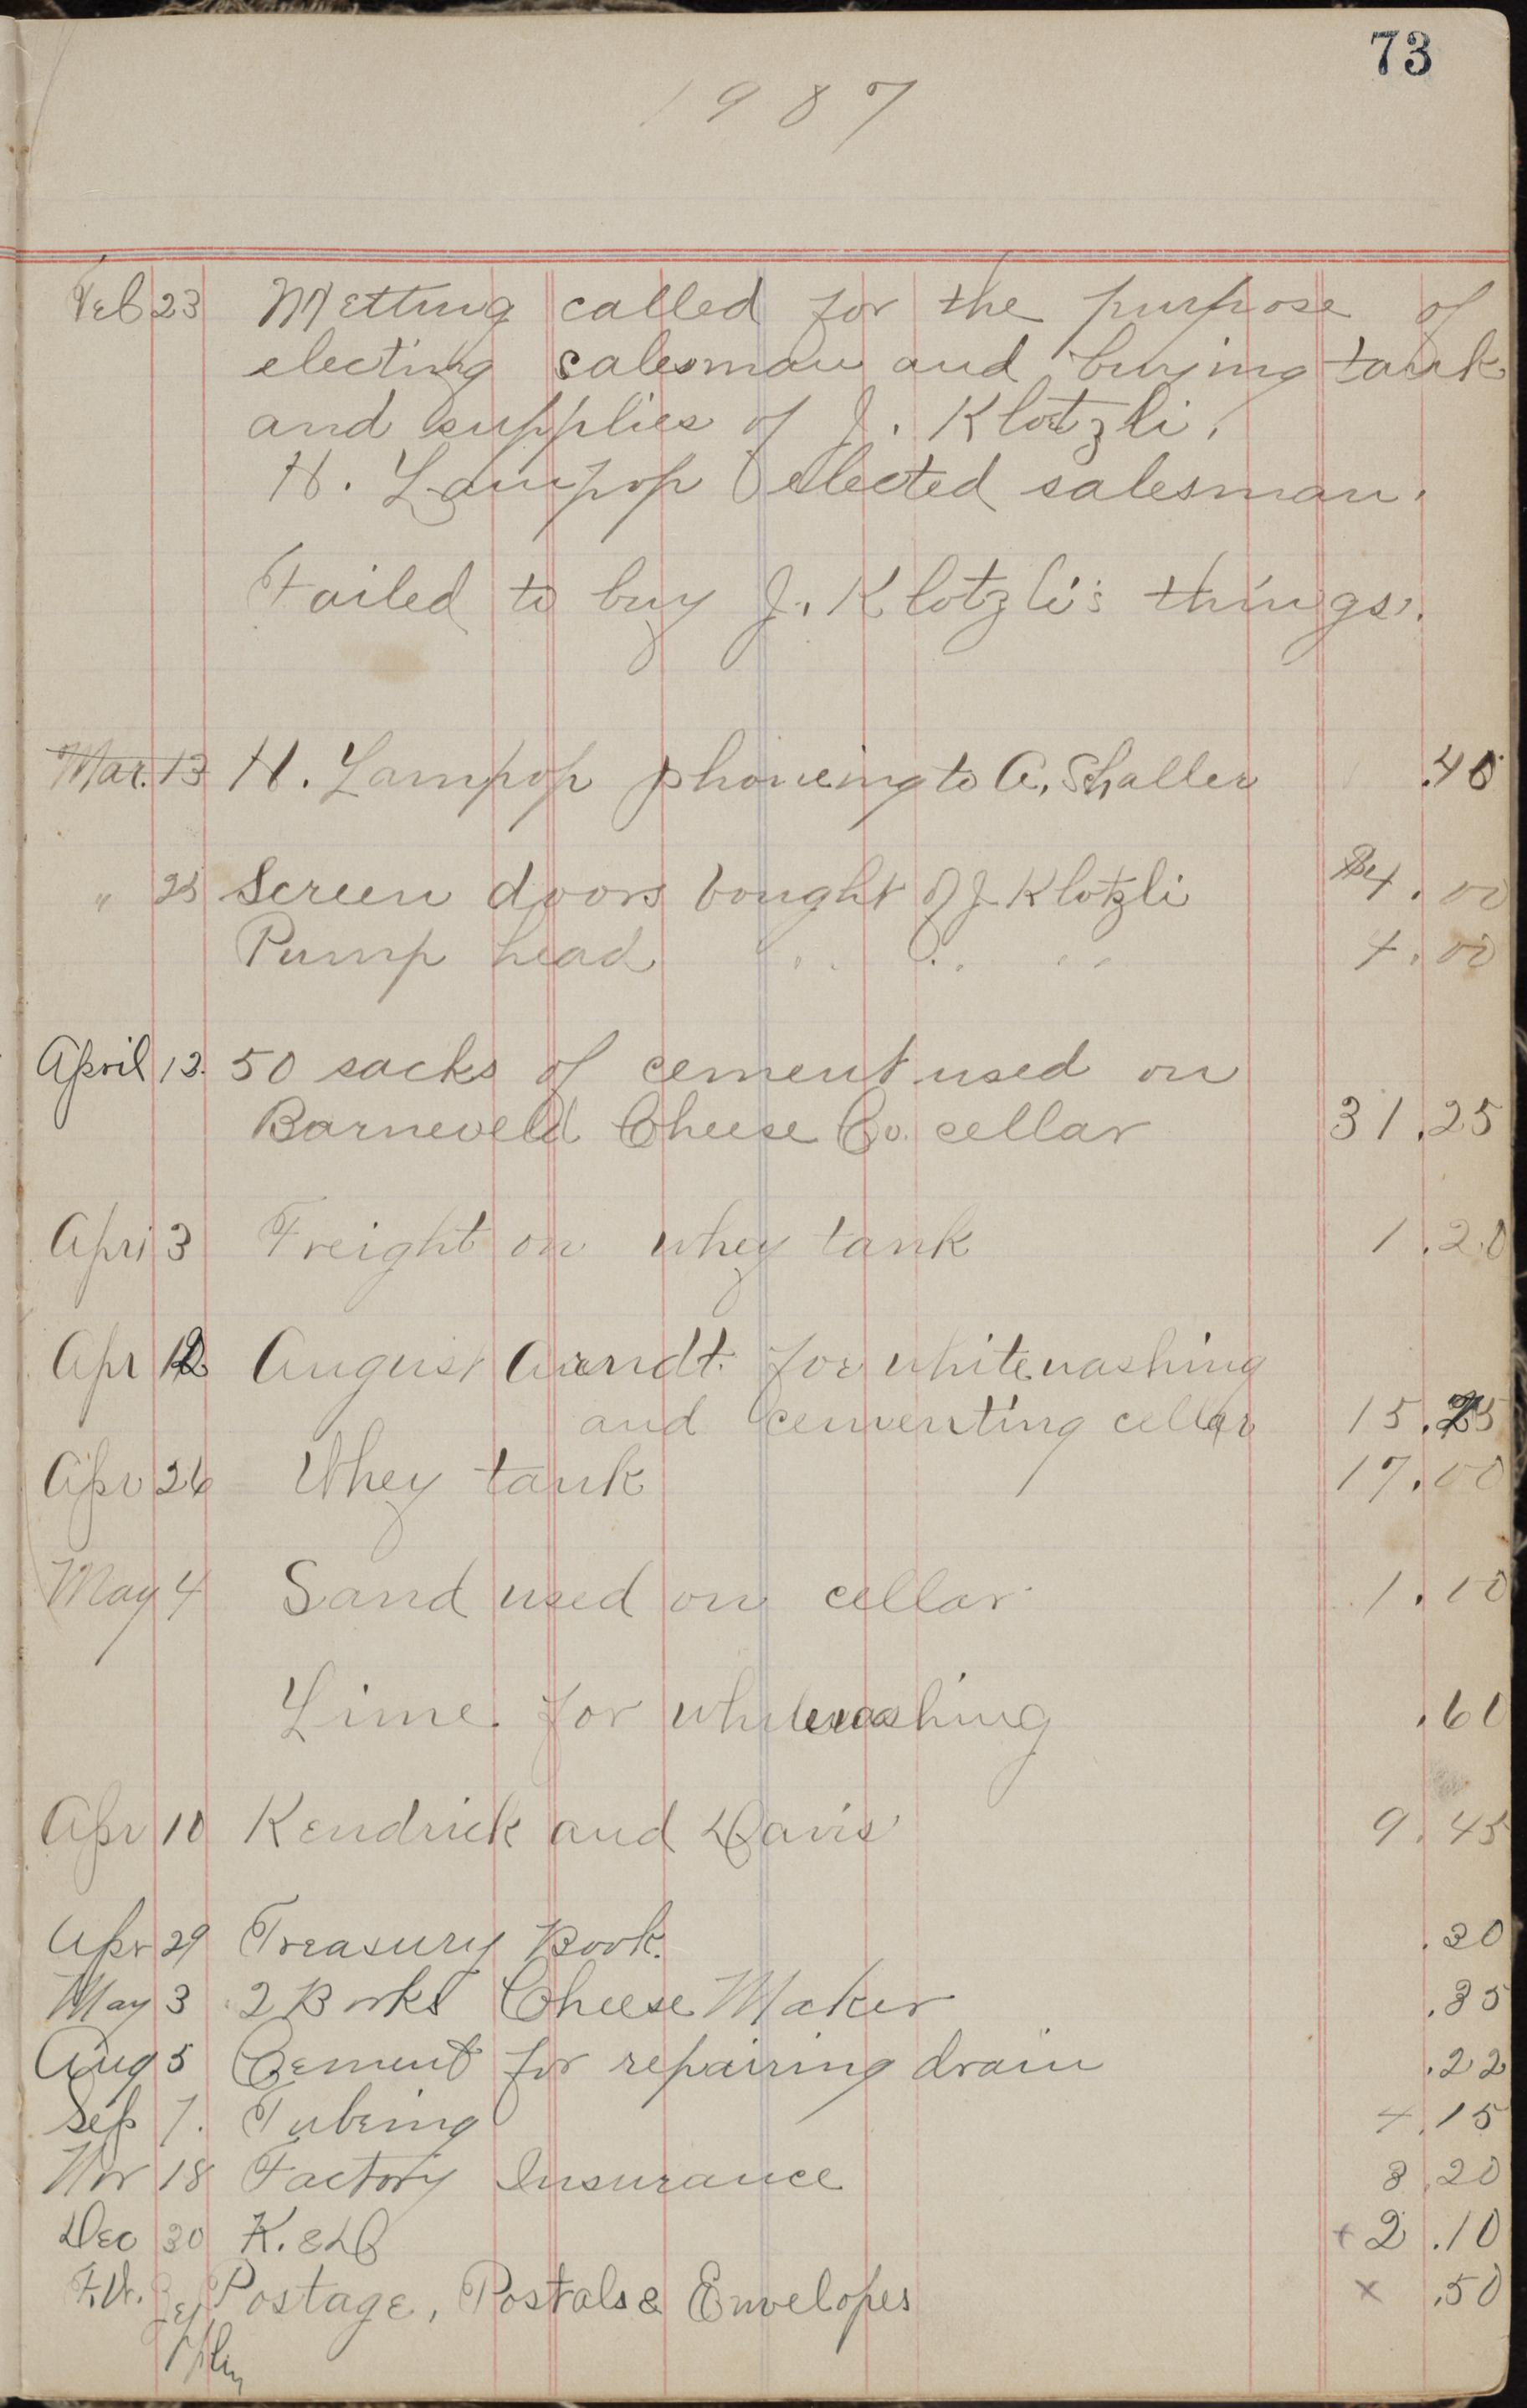 73
1987
Feb 23 Metting called for the purpose of
electing salesman and buying tank
and supplies of J. Klotzli.
H. Lampop elected salesman.
Failed to buy J. Klotzli's things.
Mar. 13 H. Lampop phoneing to A. Shaller .40
" 25 Screen doors bought of J. Klotzli 4.00
Pump head " " " 4.00
April 13. 50 sacks of cement used on
Barneveld Cheese Co. cellar 31.25
Apri 3 Freight on whey tank 1.20
Apr 12 August Arendt. for whitewashing
and cementing cellar 15.25
Apr 26 Whey tank 17.00
May 4 Sand used on cellar 1.10
Lime for whitewashing .60
Apr 10 Kendrick and Davis 9.45
Apr 29 Treasury Book. .30
May 3 2 Books Cheese Maker .35
Aug 5 Cement for repairing drain .22
Sep 7. Tubeing 4.15
Nov 18 Factory Insurance 3.20
Dec 30 K. & D x 2.10
Postage, Postals & Envelopes x .50